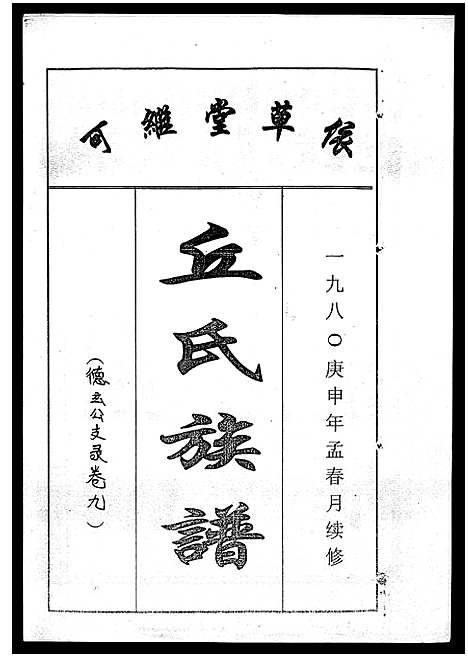 草堂維
一九八〇庚申年孟春月续修
丘氏族譜
（德五公支录卷九）